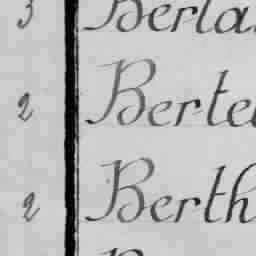 3 Berla
2 Berte
2 Berth